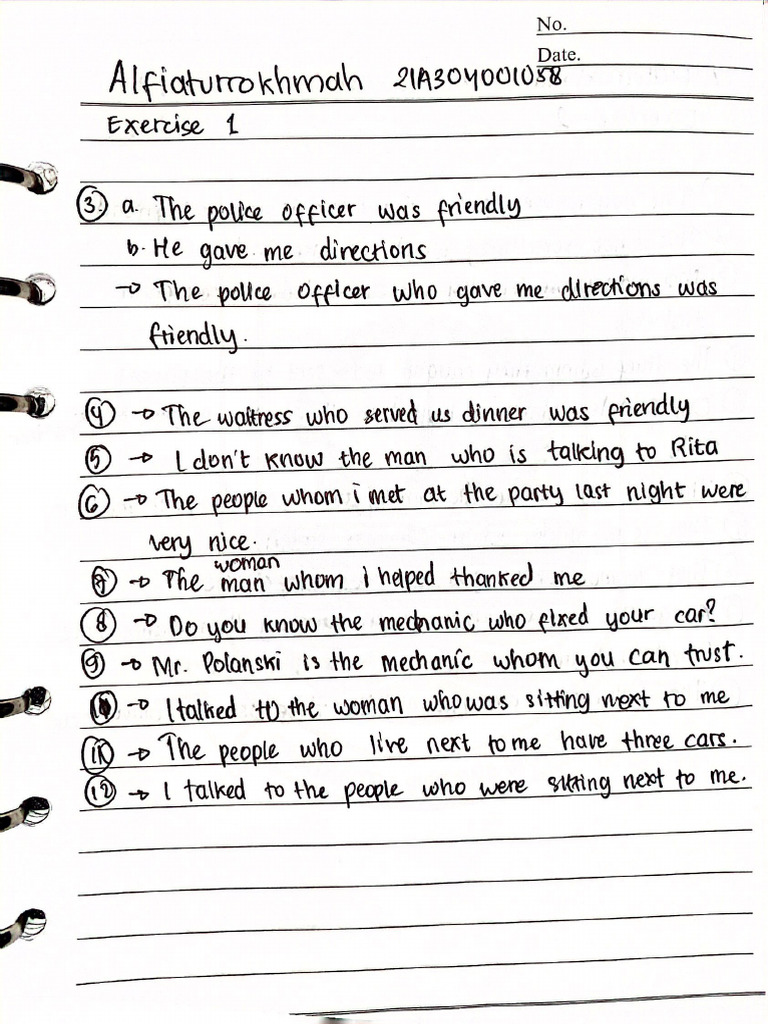 No.
Date.
Alfiaturrokhmah 21A304001058
Exercise 1
3. a. The police officer was friendly
b. He gave me directions
→ The police officer who gave me directions was
friendly.
4 → The waitress who served us dinner was friendly
5 → I don't know the man who is talking to Rita
6 → The people whom i met at the party last night were
very nice.
woman
7 → The man whom i helped thanked me
8 → Do you know the mechanic who fixed your car?
9 → Mr. Polanski is the mechanic whom you can trust.
10 → I talked to the woman who was sitting next to me
11 → The people who live next to me have three cars.
12 → I talked to the people who were sitting next to me.